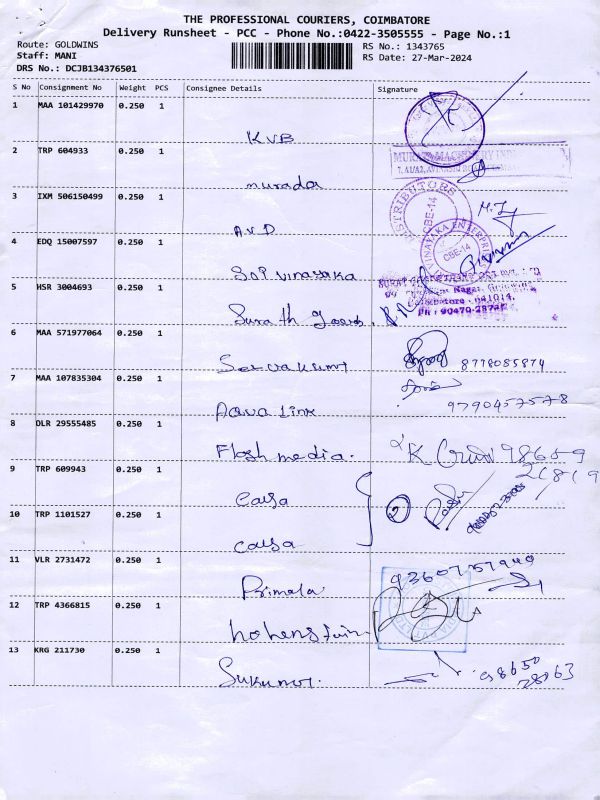 THE PROFESSIONAL COURIERS, COIMBATORE
Delivery Runsheet - PCC - Phone No.:0422-3505555 - Page No.:1
Route: GOLDWINS RS No.: 1343765
Staff: MANI RS Date: 27-Mar-2024
DRS No.: DCJB134376501
S No Consignment No Weight PCS Consignee Details Signature
1 MAA 101429970 0.250 1
KVB
2 TRP 604933 0.250 1
murada
3 IXM 506150499 0.250 1
A.V.D
DISTRIBUTORS
CBE-14
4 EDQ 15007597 0.250 1
Sop vinayaka
VINAYAKA ENTERPRI
CBE-14
5 HSR 3004693 0.250 1
Surath goods.
Coimbatore - 641014.
6 MAA 571977064 0.250 1
Selvakumr 8778085874
7 MAA 107835304 0.250 1
Aqua Link 9790457578
8 DLR 29555485 0.250 1
Flash media. K. 98659
21819
9 TRP 609943 0.250 1
Caisa
2
10 TRP 1101527 0.250 1
Caisa
11 VLR 2731472 0.250 1
Primala 9360757940
12 TRP 4366815 0.250 1
hohenstain
13 KRG 211730 0.250 1
Sukumar. 98650
28063